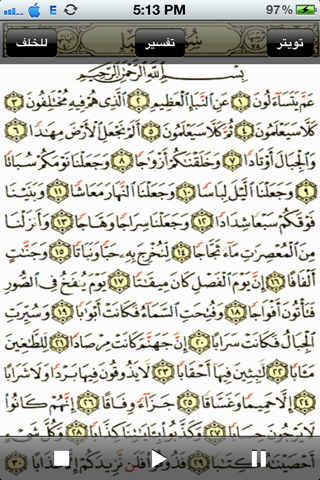 5:13 PM 97%
للخلف تفسير تويتر
بسم الله الرحمن الرحيم
عم يتساءلون ١ عن النبإ العظيم ٢ الذي هم فيه مختلفون ٣
كلا سيعلمون ٤ ثم كلا سيعلمون ٥ ألم نجعل الأرض مهادا ٦
والجبال أوتادا ٧ وخلقناكم أزواجا ٨ وجعلنا نومكم سباتا
٩ وجعلنا الليل لباسا ١٠ وجعلنا النهار معاشا ١١ وبنينا
فوقكم سبعا شدادا ١٢ وجعلنا سراجا وهاجا ١٣ وأنزلنا
من المعصرات ماء ثجاجا ١٤ لنخرج به حبا ونباتا ١٥ وجنات
ألفافا ١٦ إن يوم الفصل كان ميقاتا ١٧ يوم ينفخ في الصور
فتأتون أفواجا ١٨ وفتحت السماء فكانت أبوابا ١٩ وسيرت
الجبال فكانت سرابا ٢٠ إن جهنم كانت مرصادا ٢١ للطاغين
مئابا ٢٢ لابثين فيها أحقابا ٢٣ لا يذوقون فيها بردا ولا شرابا
٢٤ إلا حميما وغساقا ٢٥ جزاء وفاقا ٢٦ إنهم كانوا
لا يرجون حسابا ٢٧ وكذبوا بآياتنا كذابا ٢٨ وكل شيء
أحصيناه كتابا ٢٩ فذوقوا فلن نزيدكم إلا عذابا ٣٠